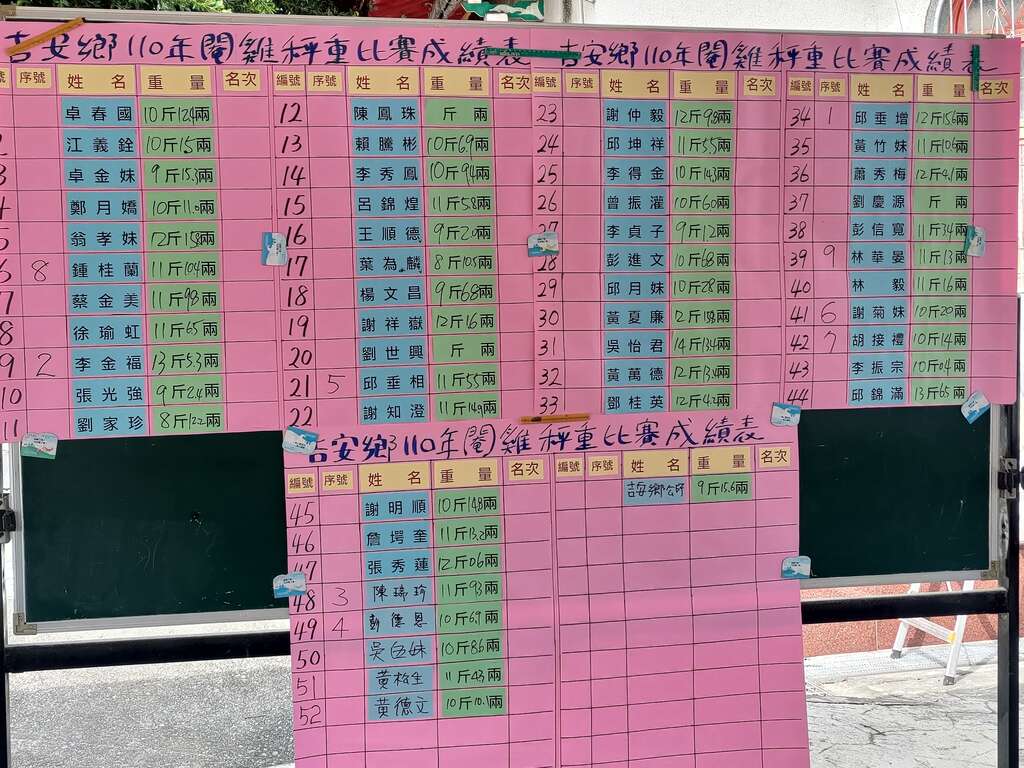 吉安鄉110年閹雞秤重比賽成績表
號 序號 姓名 重量 名次
卓春國 10斤12.4兩
江義銓 10斤1.5兩
3 卓金妹 9斤15.3兩
4 鄭月嬌 10斤11.0兩
5 翁孝妹 12斤15.8兩
6 8 鍾桂蘭 11斤10.4兩
7 蔡金美 11斤9.3兩
8 徐瑜虹 11斤6.5兩
9 2 李金福 13斤5.3兩
10 張光強 9斤2.4兩
11 劉家珍 8斤12.2兩
編號 序號 姓名 重量 名次
12 陳鳳珠 斤兩
13 賴騰彬 10斤6.9兩
14 李秀鳳 10斤9.4兩
15 呂錦煌 11斤5.8兩
16 王順德 9斤2.0兩
17 葉為麟 8斤10.5兩
18 楊文昌 9斤6.8兩
19 謝祥嶽 12斤1.6兩
20 劉世興 斤兩
21 5 邱垂相 11斤5.5兩
22 謝知澄 11斤14.9兩
吉安鄉110年閹雞秤重比賽成績表
編號 序號 姓名 重量 名次
23 謝仲毅 12斤9.8兩
24 邱坤祥 11斤5.5兩
25 李得金 10斤14.3兩
26 曾振灌 10斤6.0兩
27 李貞子 9斤1.2兩
28 彭進文 10斤6.8兩
29 邱月妹 10斤2.8兩
30 黃夏廉 12斤15.8兩
31 吳怡君 14斤13.4兩
32 黃萬德 12斤13.0兩
33 鄧桂英 12斤4.2兩
編號 序號 姓名 重量 名次
34 1 邱垂增 12斤15.6兩
35 黃竹妹 11斤10.6兩
36 蕭秀梅 12斤4.1兩
37 劉慶源 斤兩
38 彭信寬 11斤3.4兩
39 9 林華晏 11斤1.3兩
40 林毅 11斤1.6兩
41 6 謝菊妹 10斤2.0兩
42 7 胡接禮 10斤1.4兩
43 李振宗 10斤0.4兩
44 邱錦滿 13斤6.5兩
吉安鄉110年(閹)雞秤重比賽成績表
編號 序號 姓名 重量 名次
45 謝明順 10斤14.8兩
46 詹堮奎 11斤13.2兩
47 張秀蓮 12斤0.6兩
48 3 陳瑞珍 11斤9.3兩
49 4 彭德恩 10斤6.9兩
50 吳伍妹 10斤8.6兩
51 黃松生 11斤4.3兩
52 黃德文 10斤10.1兩
編號 序號 姓名 重量 名次
吉安鄉公所 9斤15.6兩